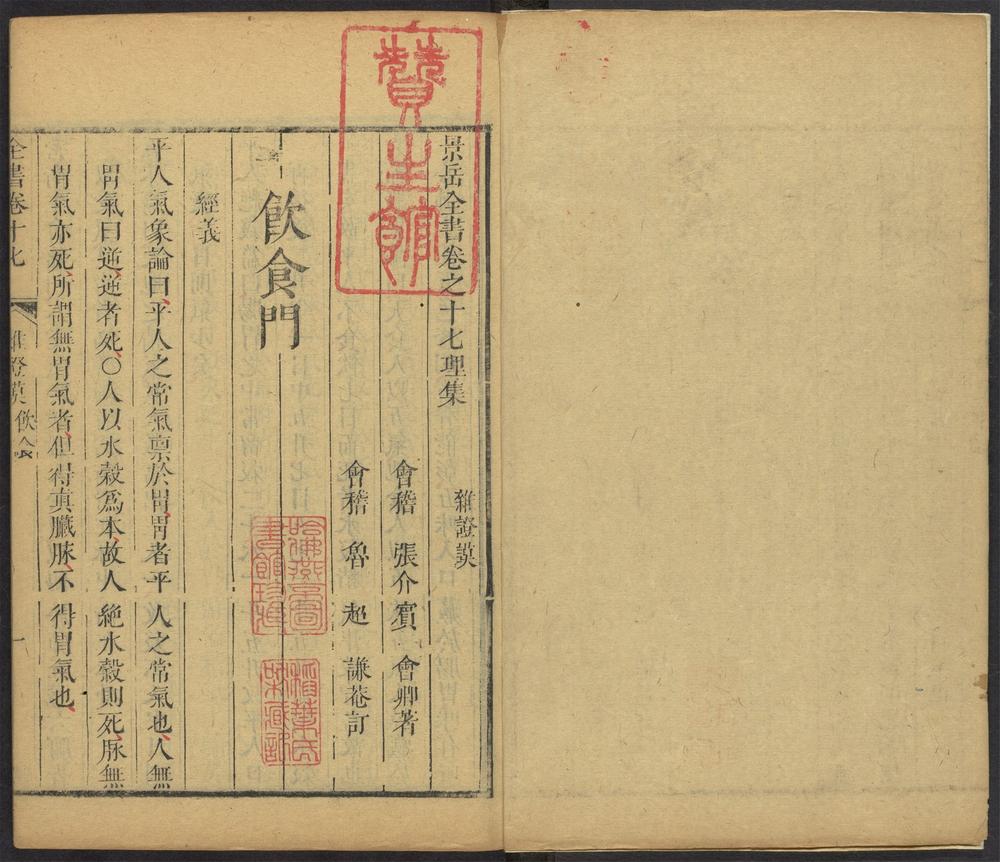 景岳全書卷之十七理集
雜證謨
會稽 張介賓 會卿著
會稽 魯超 謙菴訂
飲食門
經義
平人氣象論曰平人之常氣禀於胃胃者平人之常氣也人無
胃氣曰逆逆者死○人以水穀爲本故人絕水穀則死脉無
胃氣亦死所謂無胃氣者但得真臟脉不得胃氣也
全書卷十七
雜證謨 飲食
一
贊生館
哈佛燕京圖書館珍藏